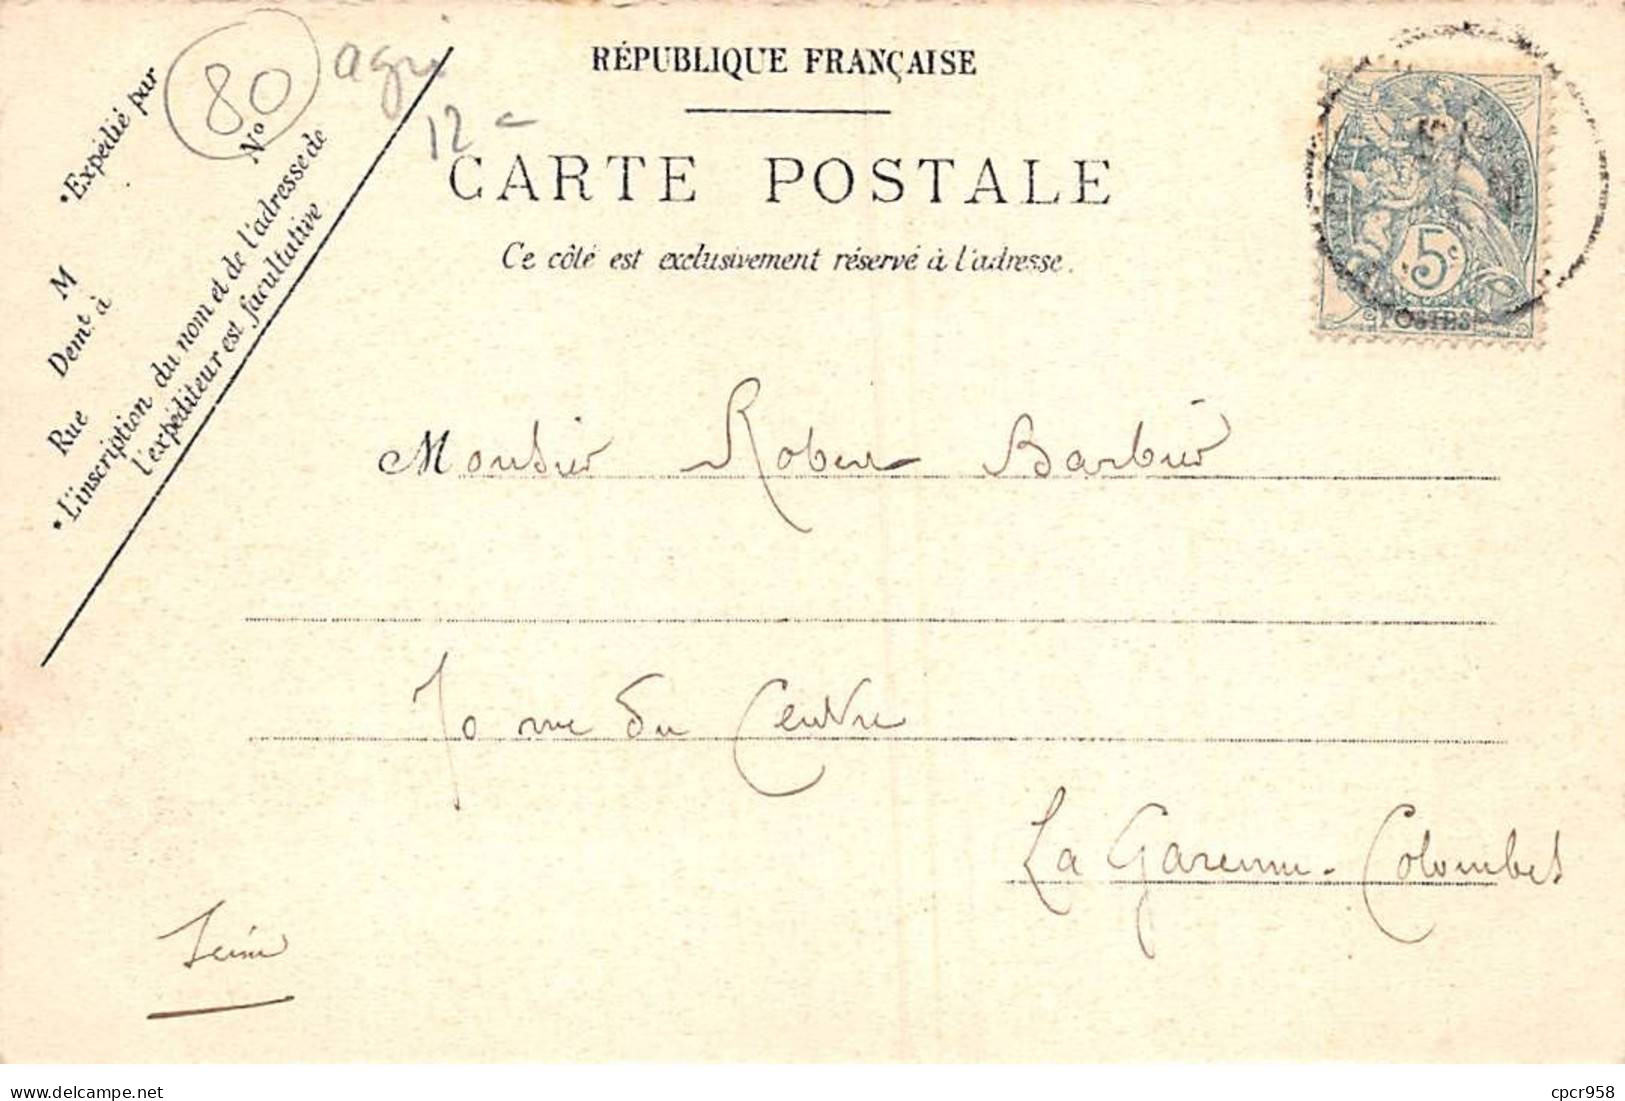 80
agri
12 -
RÉPUBLIQUE FRANÇAISE
CARTE POSTALE
Ce côté est exclusivement réservé à l'adresse.
*Expédié par
M
Demt à
Rue
N°
*L'inscription du nom et de l'adresse de
l'expéditeur est facultative
5c
POSTES
Monsieur Robert Barbier
rue du Centre
La Garenne-Colombes
Seine
cpcr958